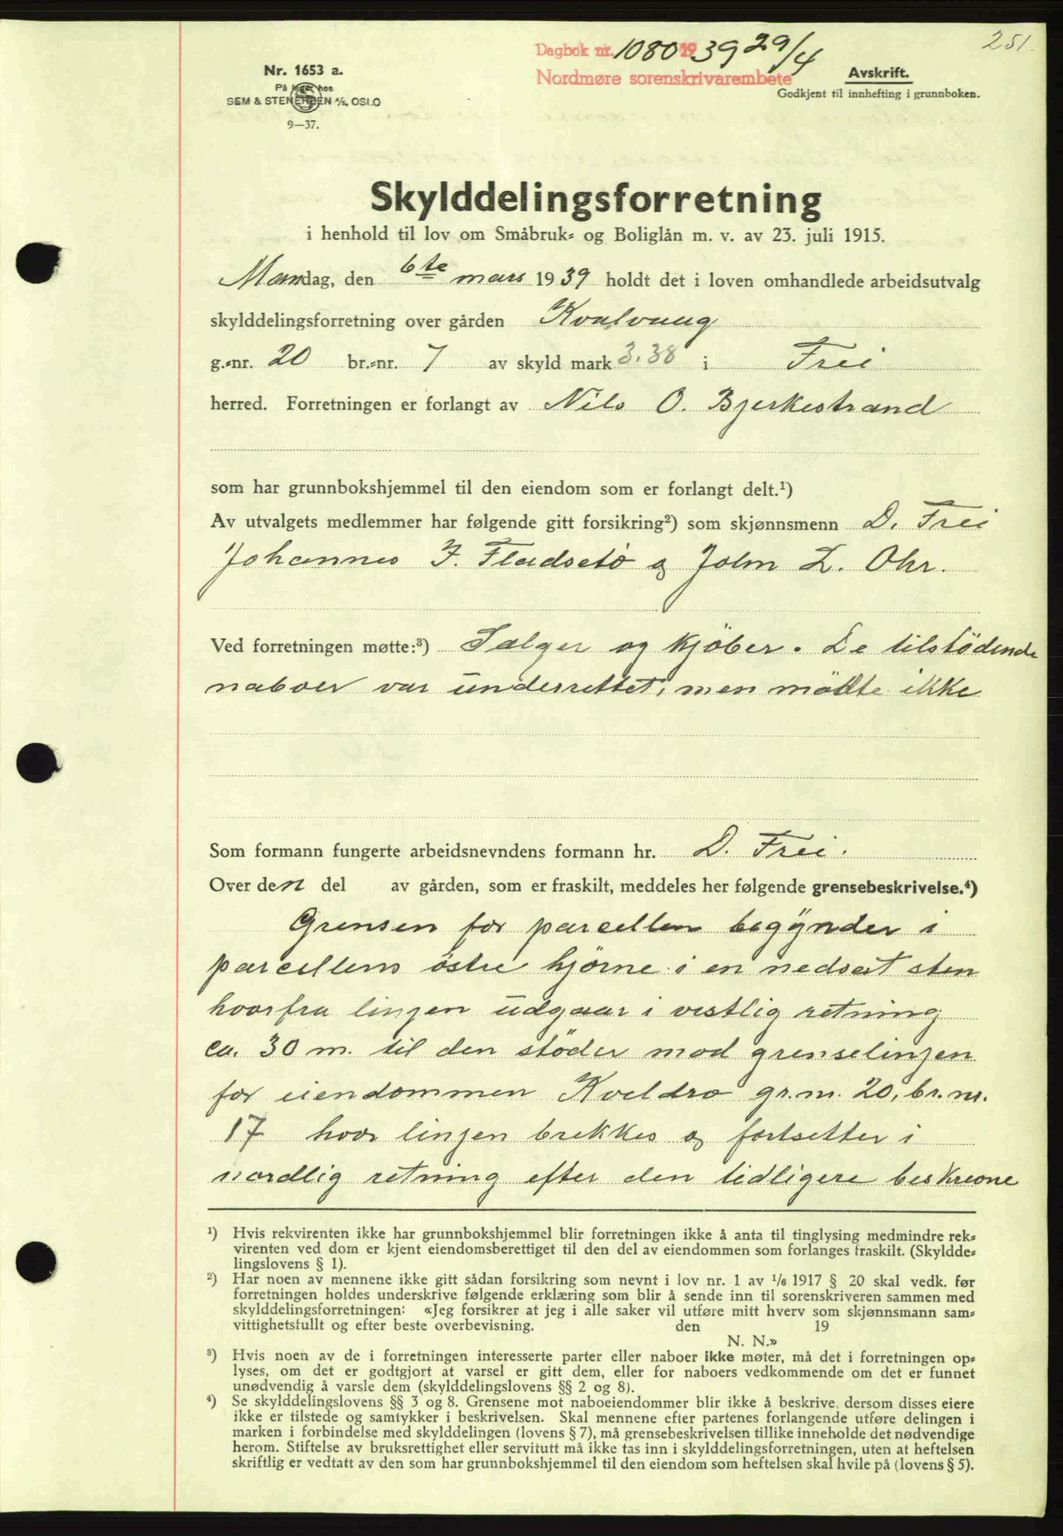 251.
Dagbok nr. 1080 1939 29/4
Nordmøre sorenskrivarembete
Avskrift.
Godkjent til innhefting i grunnboken.
Nr. 1653 a.
På lager hos
SEM & STENERSEN A/S, OSLO
9—37.
Skylddelingsforretning
i henhold til lov om Småbruk- og Boliglån m. v. av 23. juli 1915.
Mandag, den 6te mars 1939 holdt det i loven omhandlede arbeidsutvalg
skylddelingsforretning over gården Kvalvaag
g.-nr. 20 br.-nr. 7 av skyld mark 3.38 i Frei
herred. Forretningen er forlangt av Nils O. Bjerkestrand
som har grunnbokshjemmel til den eiendom som er forlangt delt.¹)
Av utvalgets medlemmer har følgende gitt forsikring²) som skjønnsmenn D. Frei
Johannes F. Fladsetø og John L. Ohr.
Ved forretningen møtte:³) Sælger og kjöber. De tilstödende
naboer var underrettet, men mødte ikke
Som formann fungerte arbeidsnevndens formann hr. D. Frei.
Over den del av gården, som er fraskilt, meddeles her følgende grensebeskrivelse.⁴)
Grensen for parcellen begynder i
parcellens östre hjörne i en nedsat sten
hvorfra linjen udgaar i vestlig retning
ca. 30 m. til den stöder mod grenselinjen
for eiendommen Kveldro gr.nr. 20, br.nr.
17 hvor linjen brekkes og fortsetter i
nordlig retning efter den tidligere beskrevne
¹) Hvis rekvirenten ikke har grunnbokshjemmel blir forretningen ikke å anta til tinglysing medmindre rek-
virenten ved dom er kjent eiendomsberettiget til den del av eiendommen som forlanges fraskilt. (Skyldde-
lingslovens § 1).
²) Har noen av mennene ikke gitt sådan forsikring som nevnt i lov nr. 1 av 1/6 1917 § 20 skal vedk. før
forretningen holdes underskrive følgende erklæring som blir å sende inn til sorenskriveren sammen med
skylddelingsforretningen: «Jeg forsikrer at jeg i alle saker vil utføre mitt hverv som skjønnsmann sam-
vittighetsfullt og efter beste overbevisning. den 19
N. N.»
³) Hvis noen av de i forretningen interesserte parter eller naboer ikke møter, må det i forretningen op-
lyses, om det er godtgjort at varsel er gitt dem, eller for naboers vedkommende om det er funnet
unødvendig å varsle dem (skylddelingslovens §§ 2 og 8).
⁴) Se skylddelingslovens §§ 3 og 8. Grensene mot naboeiendommer blir ikke å beskrive, dersom disses eiere
ikke er tilstede og samtykker i beskrivelsen. Skal mennene efter partenes forlangende utføre delingen i
marken i forbindelse med skylddelingen (lovens § 7), må grensebeskrivelsen tillike inneholde det nødvendige
herom. Stiftelse av bruksrettighet eller servitutt må ikke tas inn i skylddelingsforretningen, uten at heftelsen
skriftlig er vedtatt av den som har grunnbokshjemmel til den eiendom som heftelsen skal hvile på (lovens § 5).